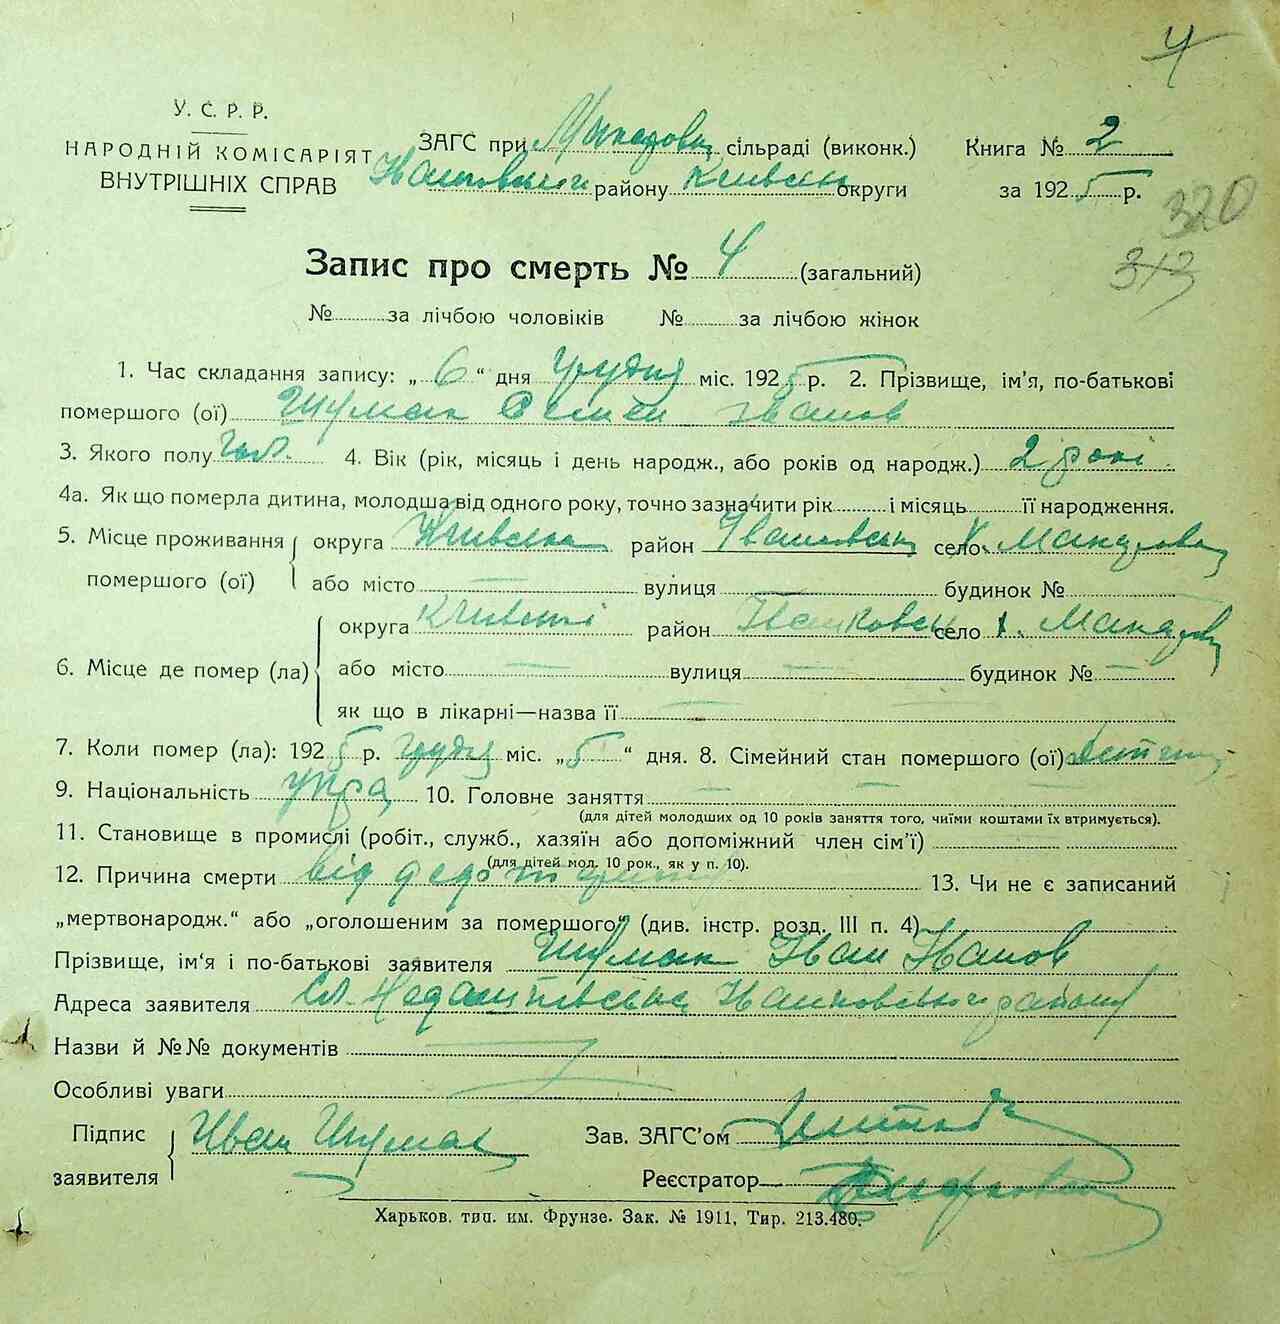 4
У. С. Р. Р.
НАРОДНІЙ КОМІСАРІЯТ
ВНУТРІШНІХ СПРАВ
ЗАГС при сільраді (виконк.)
району Київськ округи
Книга № 2
за 1925 р.
320
313
Запис про смерть № 4 (загальний)
№ за лічбою чоловіків № за лічбою жінок
1. Час складання запису: „ 6 “ дня Грудня міс. 1925 р. 2. Прізвище, ім’я, по-батькові
помершого (ої) Шумак Семен Іванов
3. Якого полу чол. 4. Вік (рік, місяць і день народж., або років од народж.) 2 роки
4а. Як що померла дитина, молодша від одного року, точно зазначити рік і місяць її народження.
5. Місце проживання округа Київська район село
помершого (ої) або місто вулиця будинок №
округа район Іванковськ село х.
6. Місце де помер (ла) або місто вулиця будинок №
як що в лікарні—назва її
7. Коли помер (ла): 1925 р. грудня міс. „ 5 “ дня. 8. Сімейний стан помершого (ої)
9. Національність укра 10. Головне заняття
(для дітей молодших од 10 років заняття того, чиїми коштами їх втримується).
11. Становище в промислі (робіт., служб., хазяїн або допоміжний член сім’ї)
(для дітей мол. 10 рок., як у п. 10).
12. Причина смерти від 13. Чи не є записаний
„мертвонародж.“ або „оголошеним за помершого“ (див. інстр. розд. III п. 4)
Прізвище, ім‘я і по-батькові заявителя Шумак Іван Іванов
Адреса заявителя району
Назви й №№ документів
Особливі уваги
Підпис
заявителя
Иван Шумак
Зав. ЗАГС’ом
Реєстратор
Харьков. тип. им. Фрунзе. Зак. № 1911, Тир. 213.480.